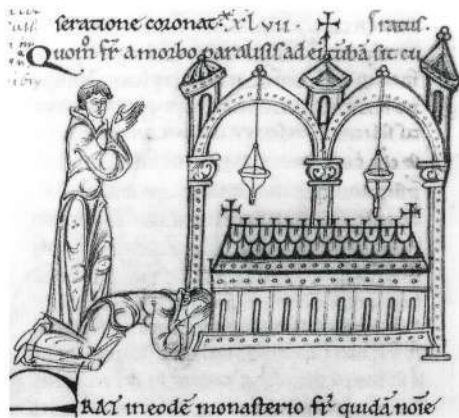 seratione coronat. xl vii. ratus.
Quom̄ fr̄ a morbo paralisis ad ei tūbā sit cu
RAT in eodē monasterio fr̄ quidā noīe